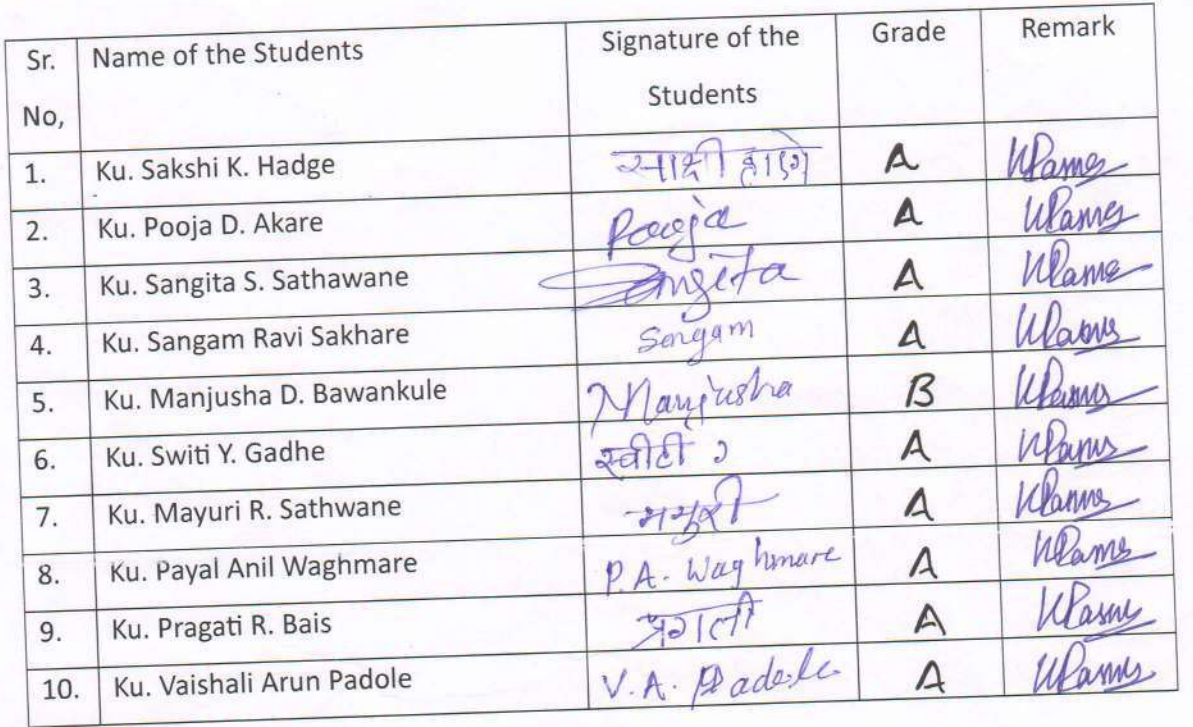 Sr. No, Name of the Students Signature of the Students Grade Remark
1. Ku. Sakshi K. Hadge साक्षी हाडगे A
2. Ku. Pooja D. Akare Pooja A
3. Ku. Sangita S. Sathawane Sangita A
4. Ku. Sangam Ravi Sakhare Sangam A
5. Ku. Manjusha D. Bawankule Manjusha B
6. Ku. Switi Y. Gadhe स्वीटी A
7. Ku. Mayuri R. Sathwane मयुरी A
8. Ku. Payal Anil Waghmare P.A. Waghmare A
9. Ku. Pragati R. Bais प्रगती A
10. Ku. Vaishali Arun Padole V.A. Padole A